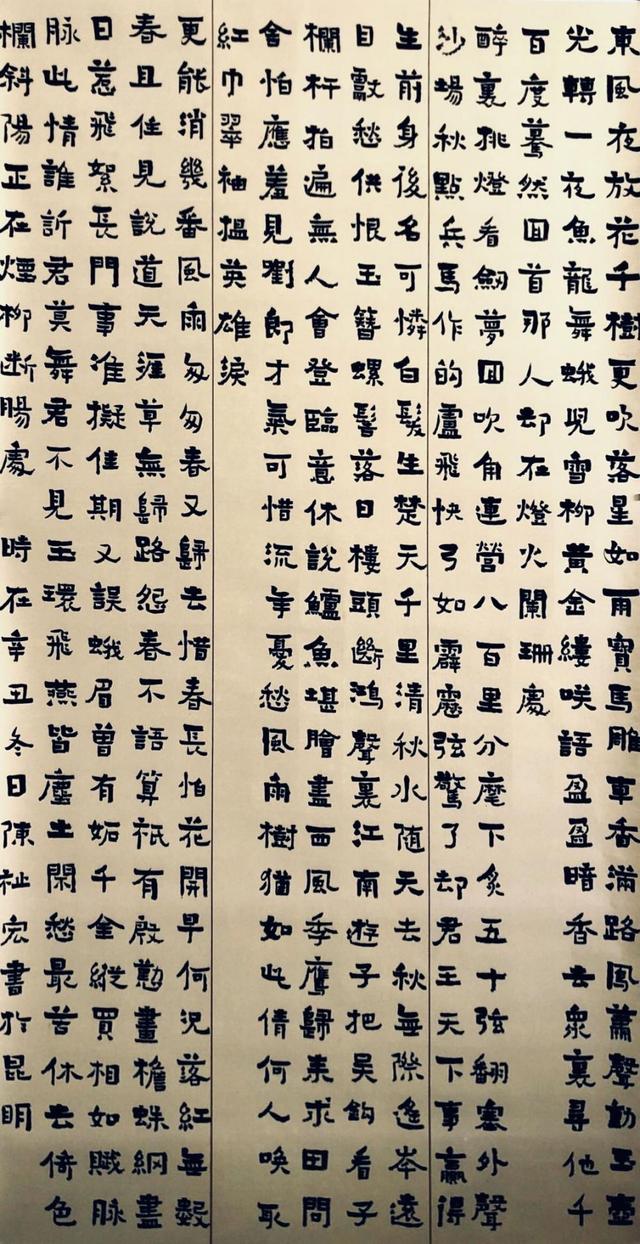 東風夜放花千樹更吹落星如雨寶馬雕車香滿路鳳蕭聲動玉壺
光轉一夜魚龍舞蛾兒雪柳黃金縷咲語盈盈暗香去衆裏尋他千
百度驀然回首那人却在燈火闌珊處
醉裏挑燈看劍夢回吹角連營八百里分麾下炙五十弦翻塞外聲
沙場秋點兵馬作的盧飛快弓如霹靂弦驚了却君王天下事贏得
生前身後名可憐白髮生楚天千里清秋水随天去秋無際遙岑遠
目獻愁供恨玉簪螺髻落日樓頭斷鴻聲裏江南遊子把吳鈎看子
欄杆拍遍無人會登臨意休說鱸魚堪膾盡西風季鷹歸未求田問
舍怕應羞見劉郎才氣可惜流年憂愁風雨樹猶如此倩何人喚取
紅巾翠袖揾英雄淚
更能消幾番風雨匆匆春又歸去惜春長怕花開早何況落紅無數
春且住見說道天涯草無歸路怨春不語算祇有殷勤畫檐蛛網盡
日惹飛絮長門事准擬佳期又誤蛾眉曾有妬千金縱買相如賦脉
脉此情誰訴君莫舞君不見玉環飛燕皆塵土閑愁最苦休去倚色
欄斜陽正在煙柳断腸處 時在辛丑冬日陳祉宏書於昆明